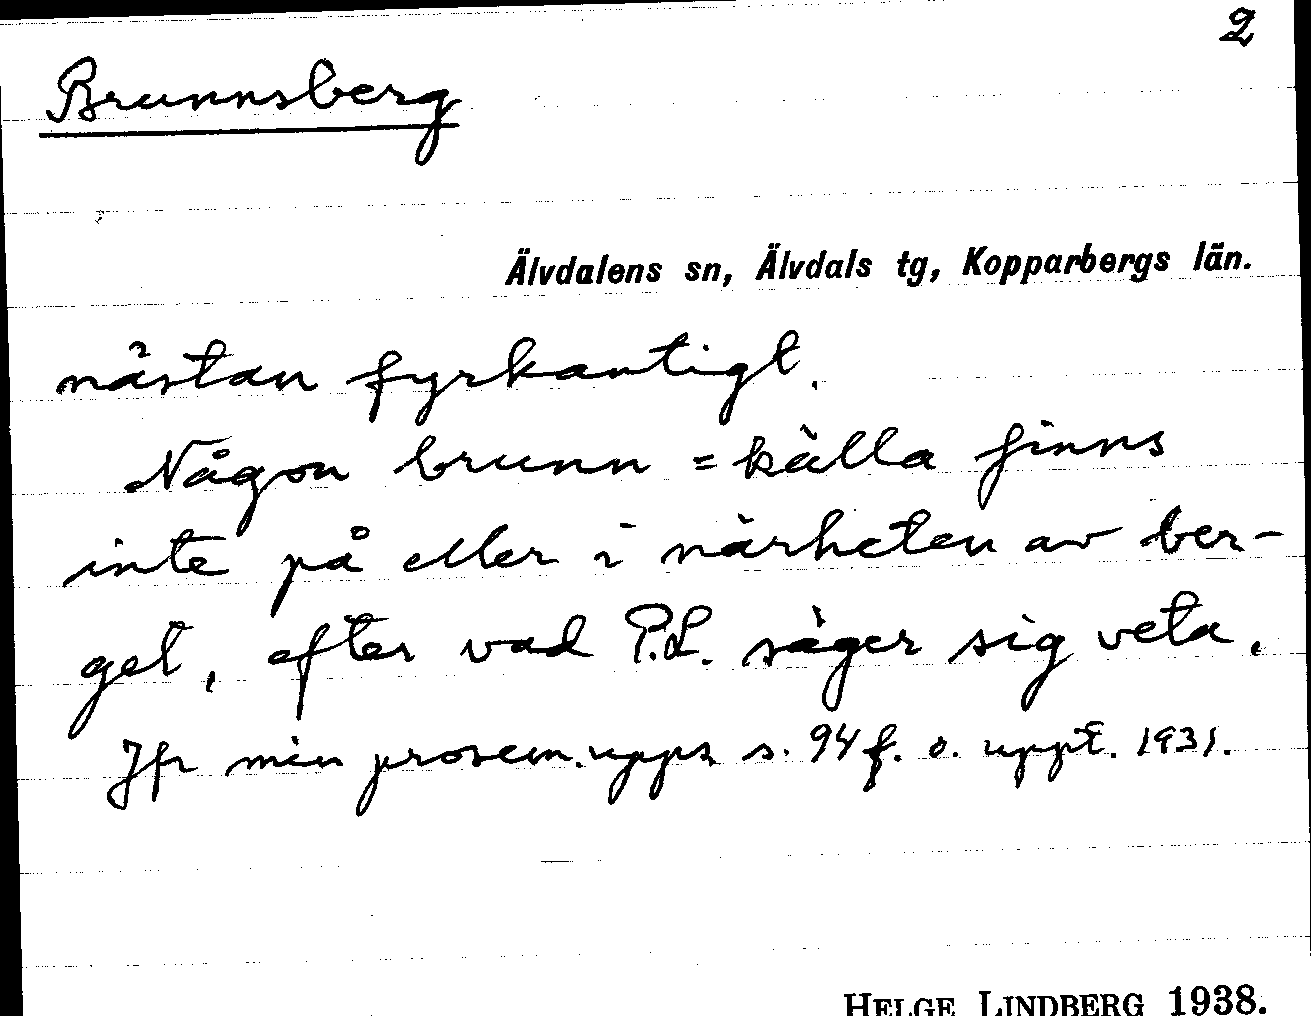 2
Brunnsberg
Älvdalens sn, Älvdals tg, Kopparbergs län.
nästan fyrkantigt.
Någon brunn = källa finns
inte på eller i närheten av ber-
get, efter vad P.L. säger sig veta.
Jfr min prosem.upps. s. 94 f. o. uppt. 1931.
HELGE LINDBERG 1938.